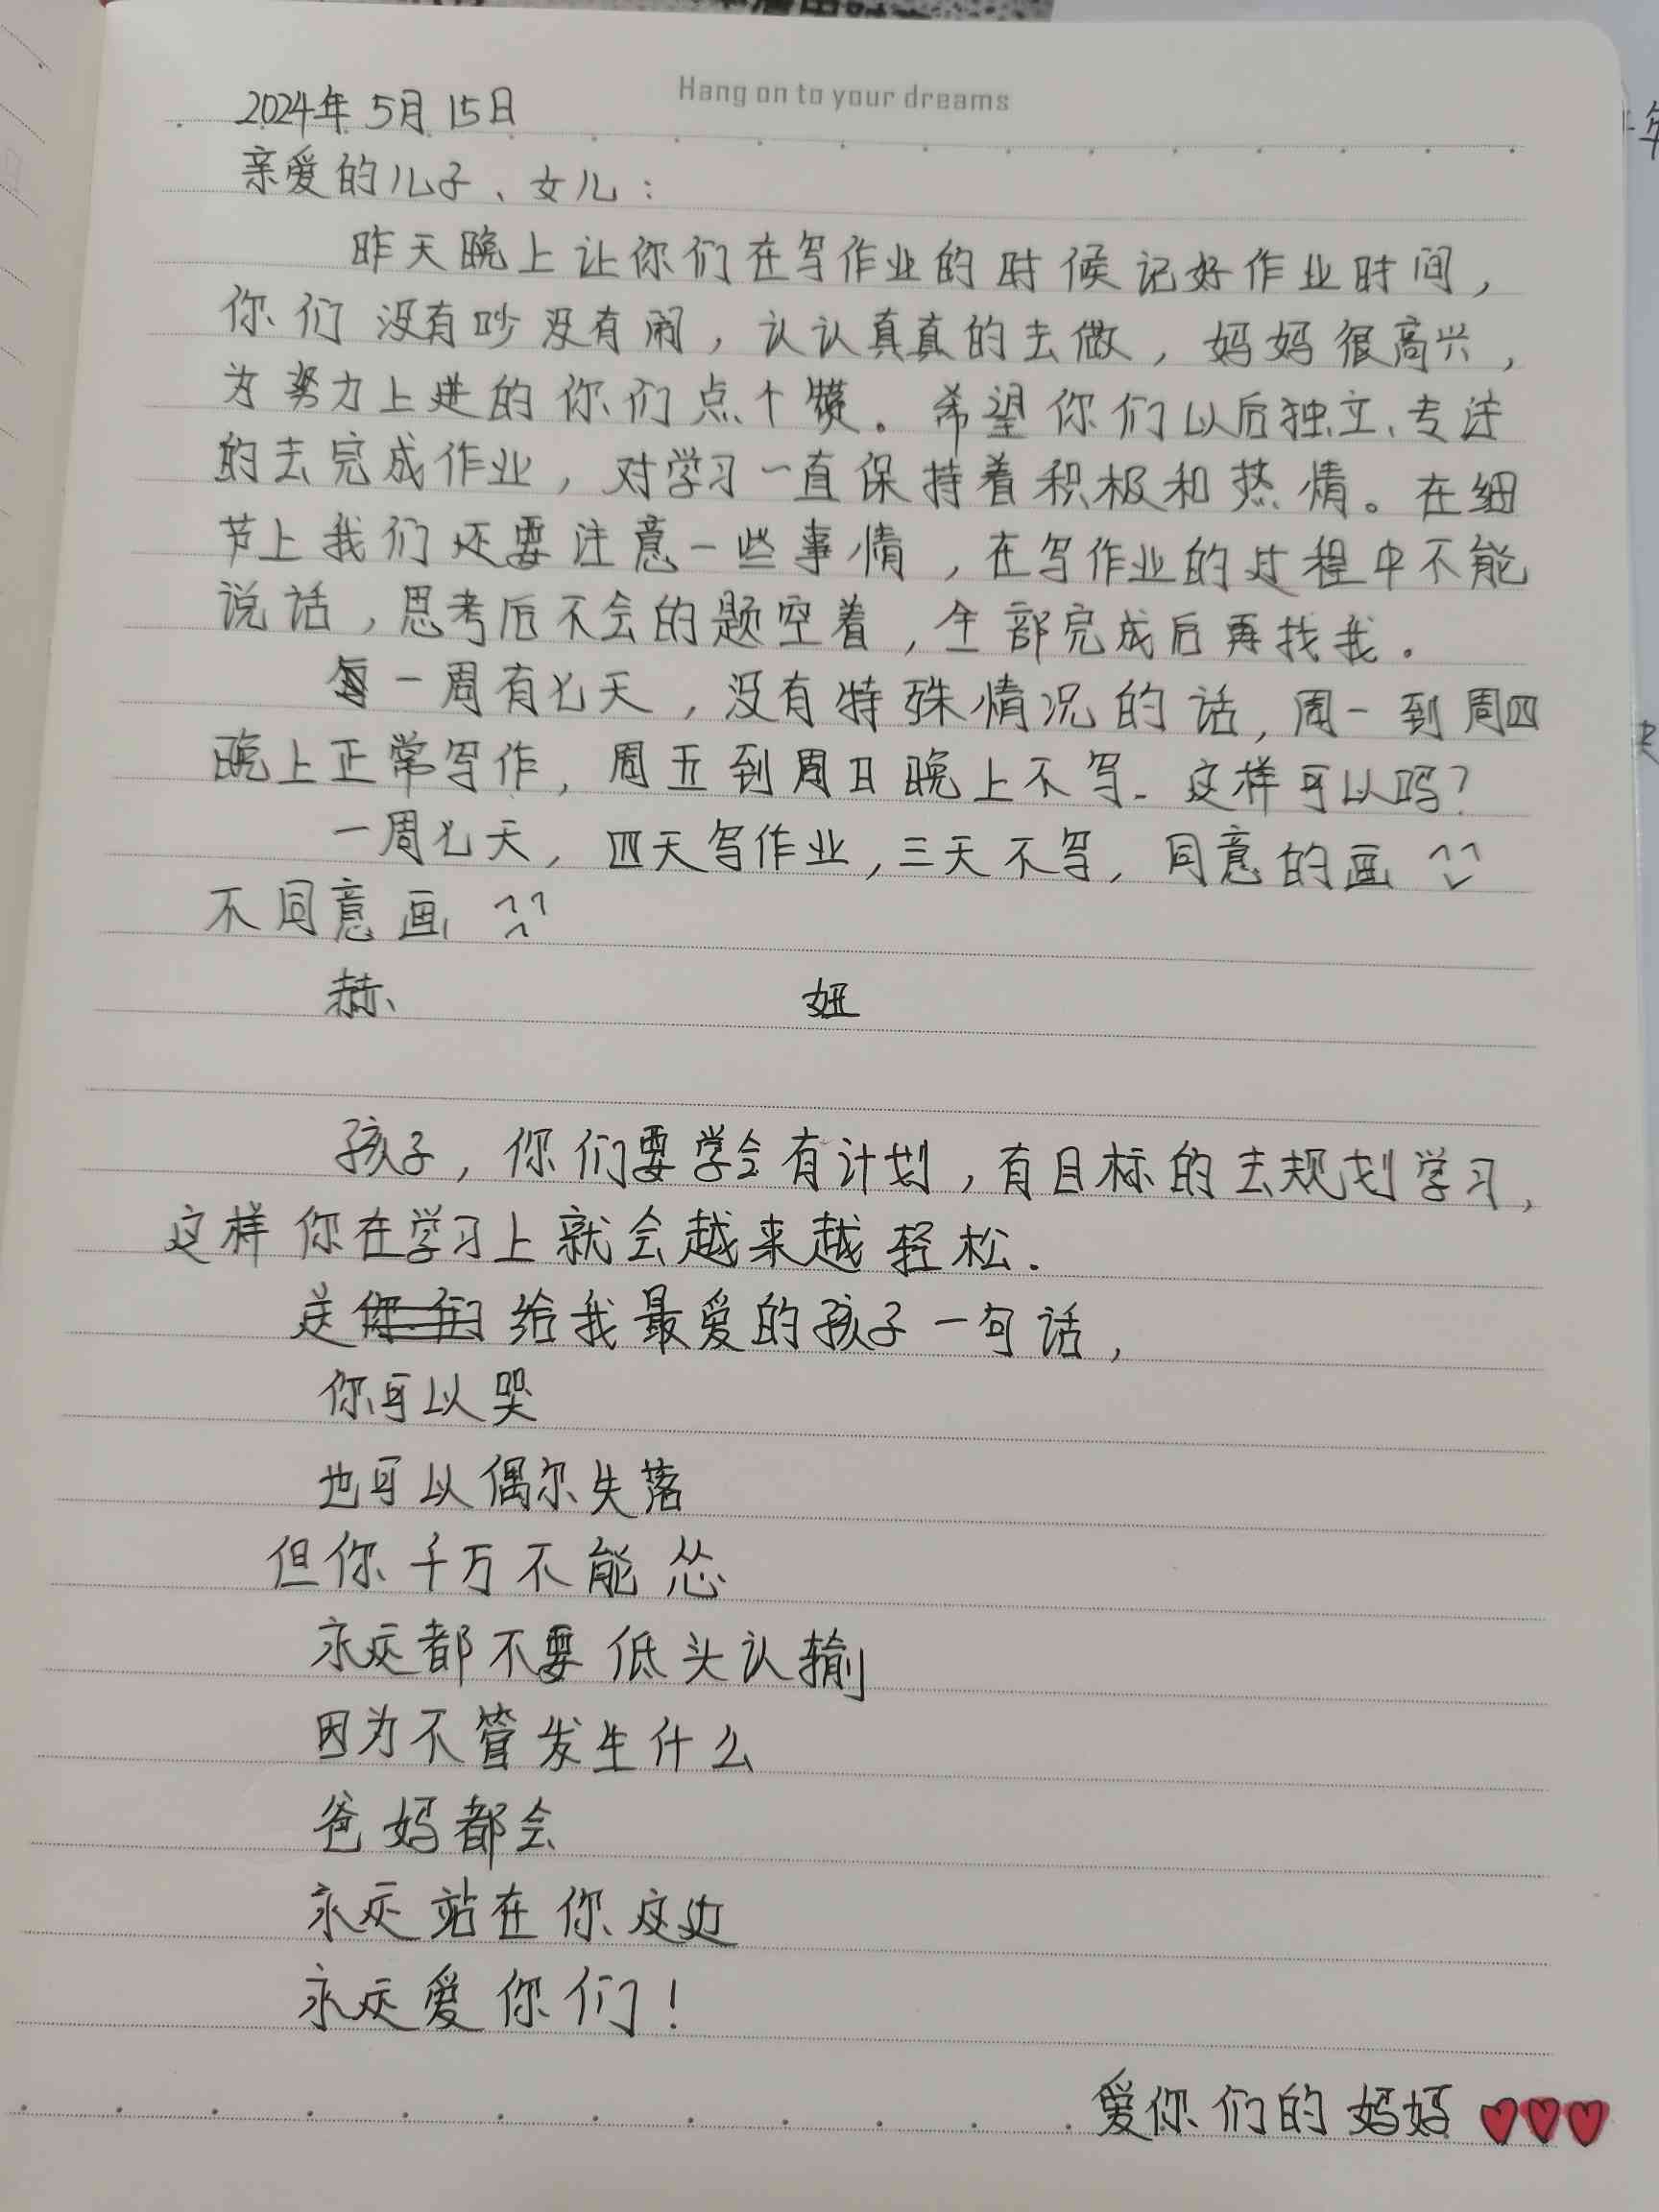 Hang on to your dreams
2024年5月15日
亲爱的儿子、女儿：
昨天晚上让你们在写作业的时候记好作业时间，
你们没有吵没有闹，认认真真的去做，妈妈很高兴，
为努力上进的你们点个赞。希望你们以后独立、专注
的去完成作业，对学习一直保持着积极和热情。在细
节上我们还要注意一些事情，在写作业的过程中不能
说话，思考后不会的题空着，全部完成后再找我.
每一周有七天，没有特殊情况的话，周一到周四
晚上正常写作，周五到周日晚上不写. 这样可以吗？
一周七天，四天写作业，三天不写，同意的画
不同意画
赫、 妞
孩子，你们要学会有计划，有目标的去规划学习，
这样你在学习上就会越来越轻松.
送给我最爱的孩子一句话，
你可以哭
也可以偶尔失落
但你千万不能怂
永远都不要低头认输
因为不管发生什么
爸妈都会
永远站在你这边
永远爱你们！
爱你们的妈妈